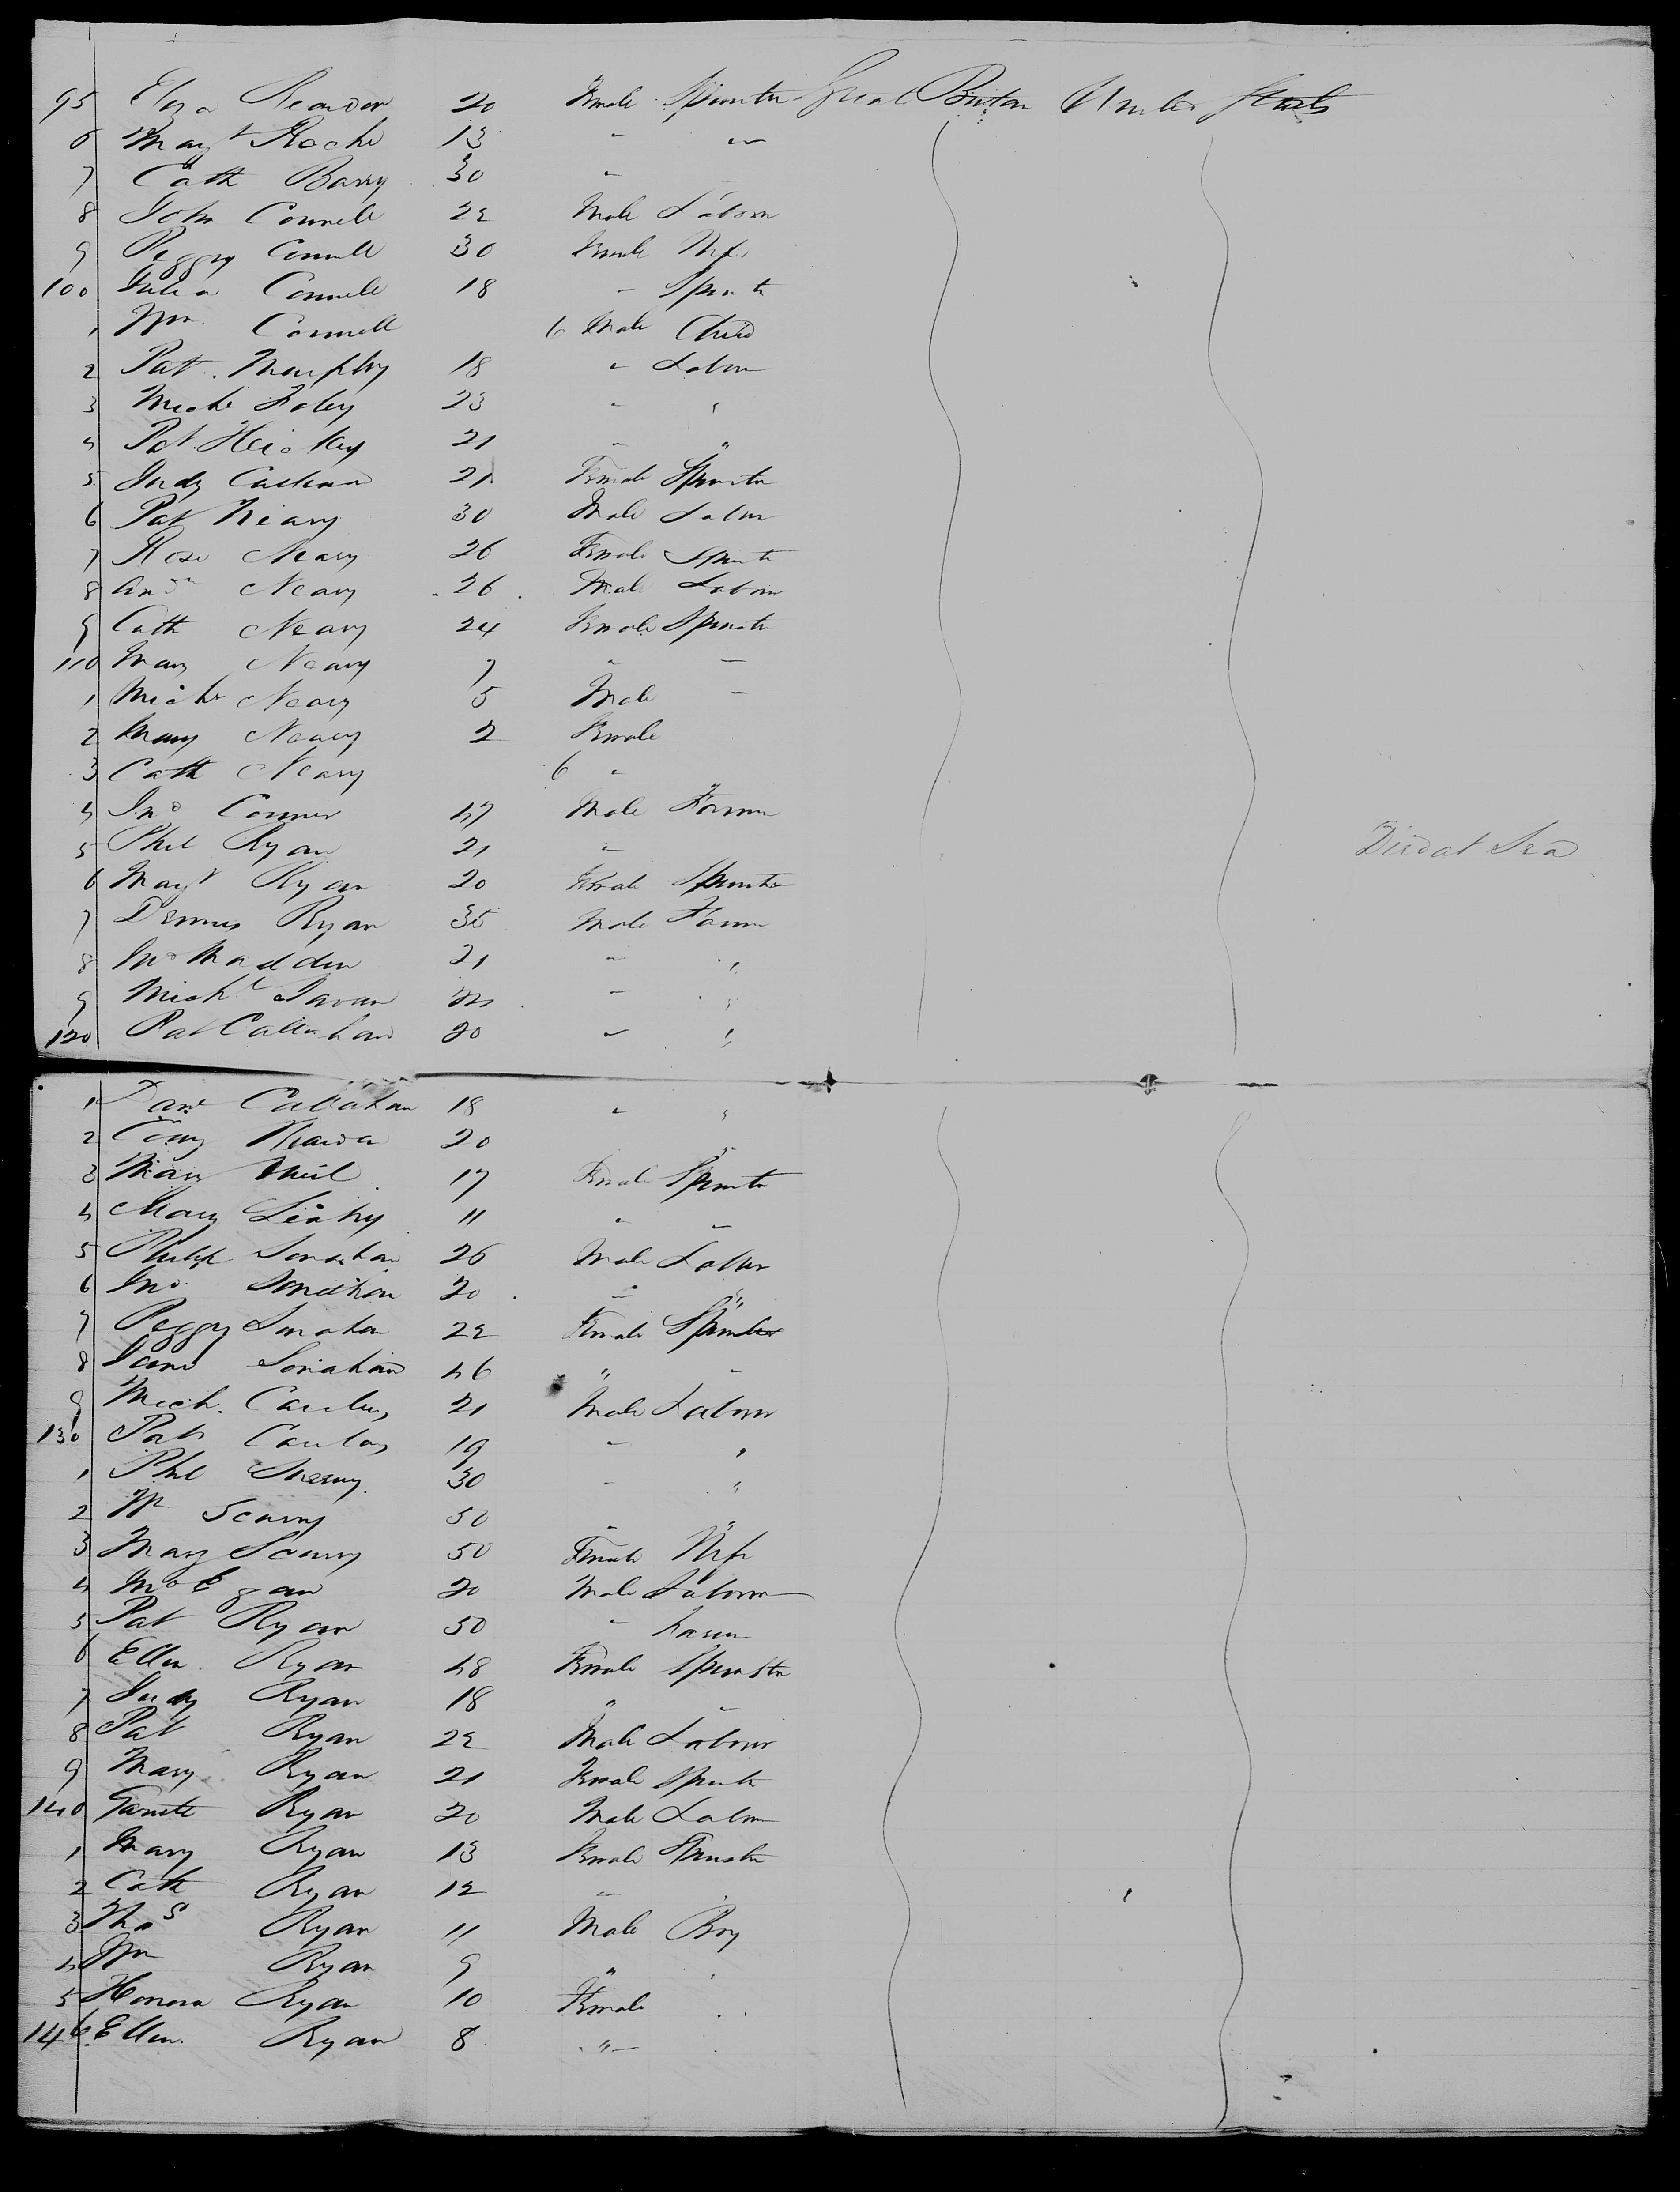 95 Eliza Reardon 20 Female Spinster Great Britain United States
6 Margt Roche 13 " "
7 Cath Barry 30 "
8 John Connell 22 Male Labour
9 Peggy Connell 30 Female Wife
100 Julia Connell 18 " Spinster
1 Wm. Connell 6 Male Child
2 Pat. Murphy 18 " Labour
3 Michl Foley 23 " "
4 Pat Hickey 21 " "
5 Judy 21 Female Spinster
6 Pat Neary 30 Male Labour
7 Rose Neary 26 Female Spinster
8 Andw Neary 26 Male Labour
9 Cath Neary 24 Female Spinster
110 Mary Neary 7 " "
1 Michl Neary 5 Male "
2 Mary Neary 2 Female
3 Cath Neary 6 "
4 Jno Connor 47 Male Farmer
5 Phil Ryan 21 " Died at Sea
6 Margt Ryan 20 Female Spinster
7 Dennis Ryan 35 Male Farmer
8 Jno Madden 21 " "
9 Michl " "
120 Pat Callahan 20 " "
1 Danl Callahan 18 " "
2 20 "
3 Mary 17 Female Spinster
4 Mary Leahy 11 " "
5 Philip 26 Male Labour
6 Jno. 20 " "
7 Peggy 22 Female Spinster
8 46 " "
9 Mich. 21 Male Labour
130 Pat 19 " "
1 Phil 30 " "
2 W Scurry 50 " "
3 Mary Scurry 50 Female Wife
4 Jno Egan 20 Male Labour
5 Pat Ryan 50 " Farmer
6 Ellen Ryan 48 Female Spinster
7 Judy Ryan 18 " "
8 Pat Ryan 22 Male Labour
9 Mary Ryan 21 Female Spinster
140 Garrett Ryan 20 Male Labour
1 Mary Ryan 13 Female Spinster
2 Cath Ryan 12 "
3 Thos Ryan 11 Male Boy
4 Wm Ryan 9 " "
5 Honora Ryan 10 Female
146 Ellen Ryan 8 "